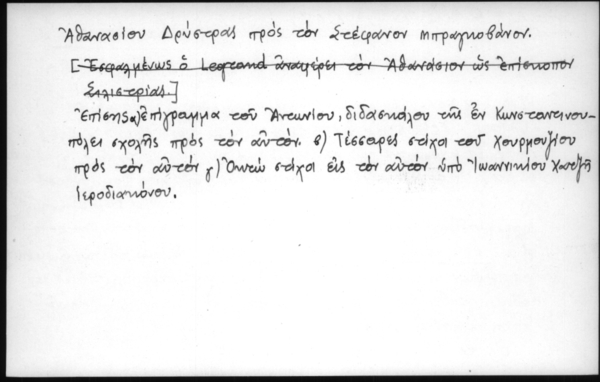 Ἀθανασίου Δρύστρας πρὸς τὸν Στέφανον Μπραγκοβάνον.
[Ἐσφαλμένως ὁ Legrand ἀναφέρει τὸν Ἀθανάσιον ὡς ἐπίσκοπον
Σιλιστρίας.]
Ἐπίσης α) ἐπίγραμμα τοῦ Ἀντωνίου, διδασκάλου τῆς ἐν Κωνσταντινου-
πόλει σχολῆς πρὸς τὸν αὐτόν. β) Τέσσαρες στίχοι τοῦ Χουρμουζίου
πρὸς τὸν αὐτὸν γ) Ὀκτὼ στίχοι εἰς τὸν αὐτὸν ὑπὸ Ἰωαννικίου Χατζῆ
Ἱεροδιακόνου.